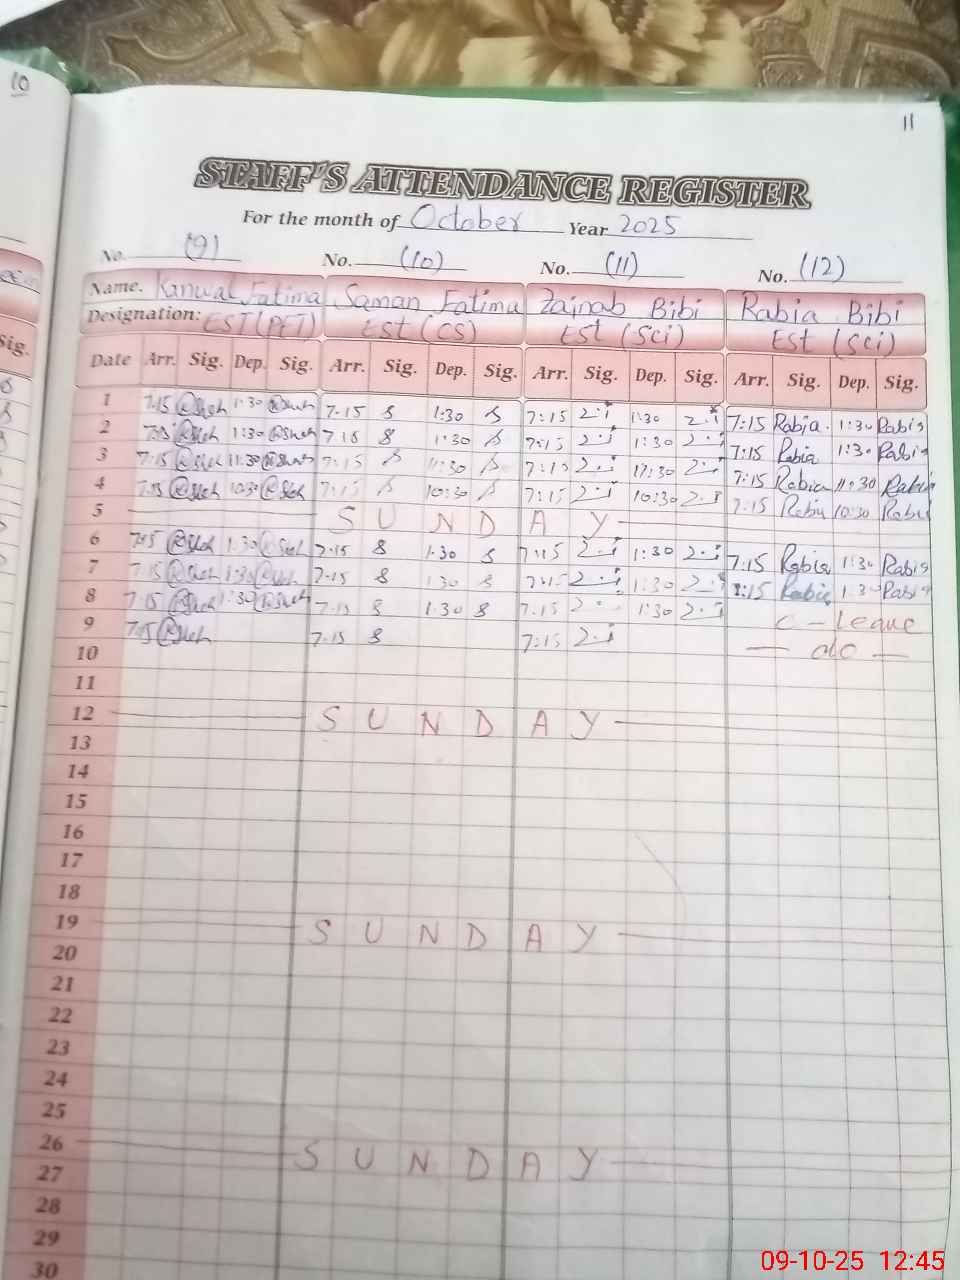 10
11
STAFF'S ATTENDANCE REGISTER
For the month of October Year 2025
No. (9) No. (10) No. (11) No. (12)
Name. Kanwal Fatima Saman Fatima Zainab Bibi Rabia Bibi
Designation: EST(PET) Est (CS) Est (Sci) Est (Sci)
Sig. Date Arr. Sig. Dep. Sig. Arr. Sig. Dep. Sig. Arr. Sig. Dep. Sig. Arr. Sig. Dep. Sig.
1 7:15 1:30 7-15 1:30 7:15 1:30 7:15 Rabia 1:30 Rabia
2 7:15 1:30 7.15 1:30 7:15 1:30 7:15 Rabia 1:30 Rabia
3 7:15 11:30 7:15 11:30 7:15 11:30 7:15 Rabia 11:30 Rabia
4 7:15 10:30 7:15 10:30 7:15 10:30 7:15 Rabia 10:30 Rabia
5 SUNDAY
6 7:15 1:30 7.15 1.30 7:15 1:30 7:15 Rabia 1:30 Rabia
7 7:15 1:30 7-15 1:30 7:15 1:30 7:15 Rabia 1:30 Rabia
8 7:15 1:30 7.15 1.30 7.15 1:30 C-Leave
9 7:15 7.15 7:15 — do —
10
11
12 SUNDAY
13
14
15
16
17
18
19 SUNDAY
20
21
22
23
24
25
26 SUNDAY
27
28
29
30
09-10-25 12:45